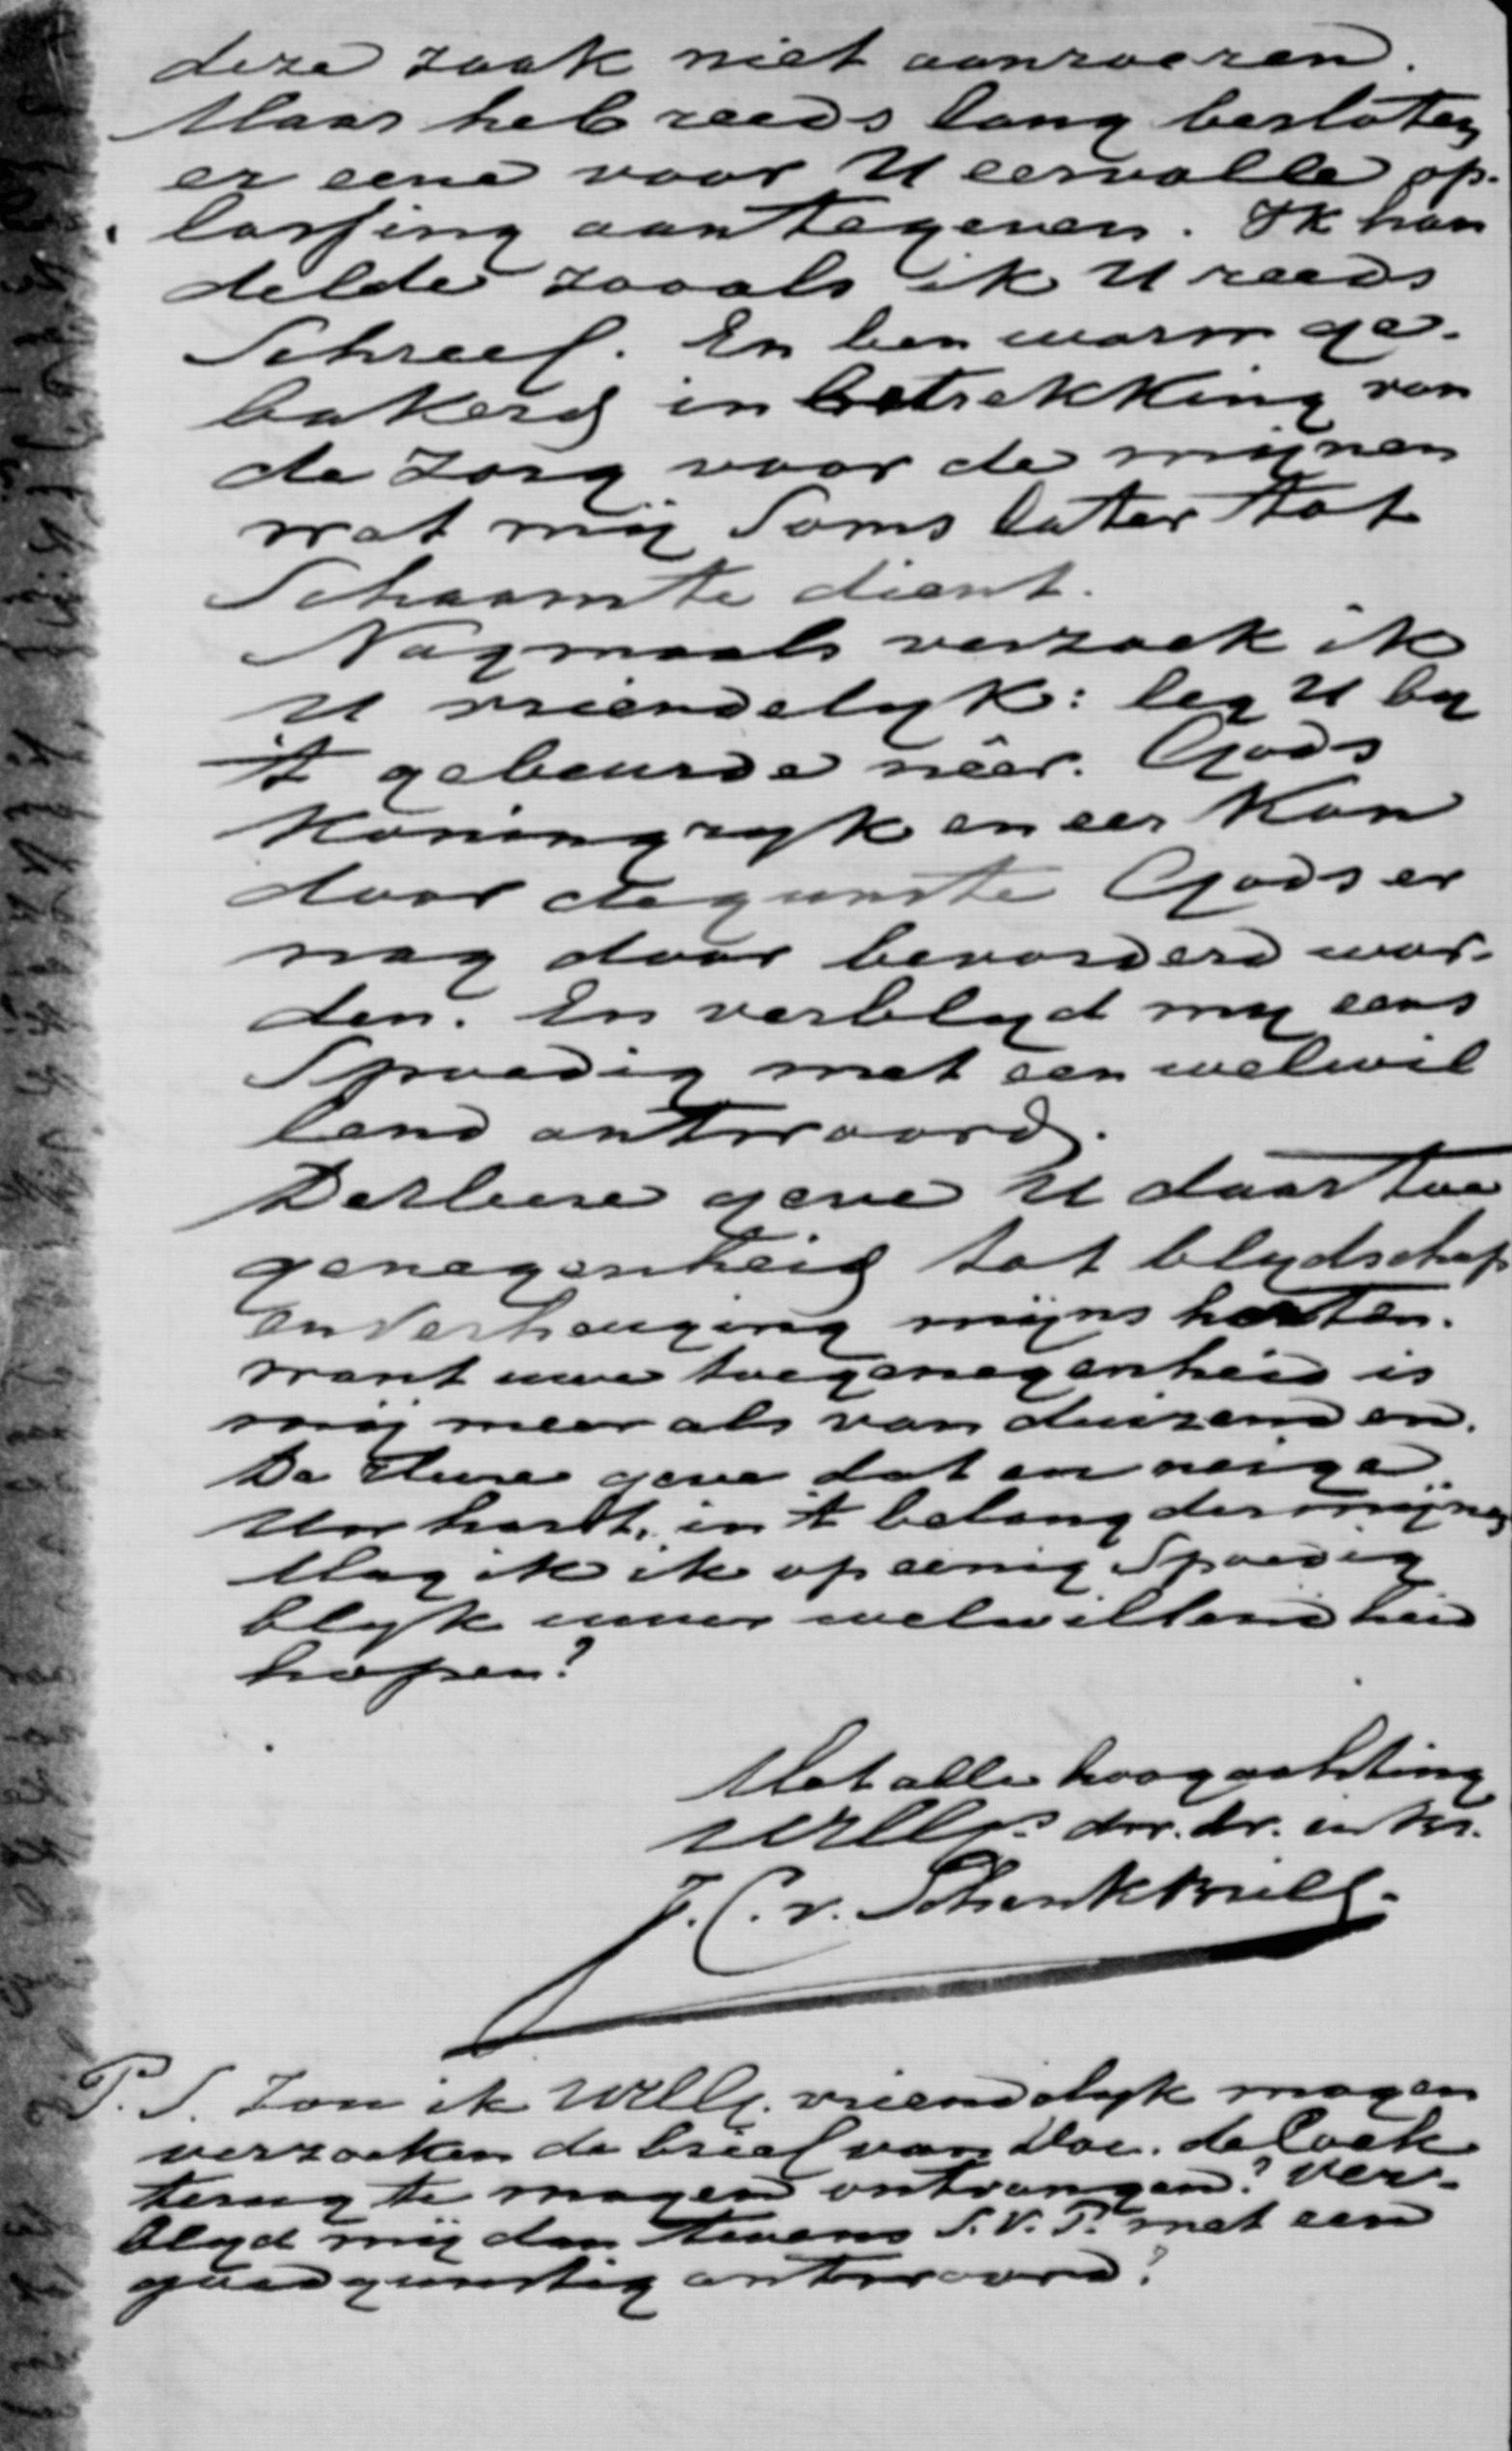 deze zaak niet aanroeren.
Maar heb reeds lang besloten
er eene voor U eervolle op-
lossing aantegeven. Ik han
delde zooals ik U reeds
Schreef. En ben warm ge-
bakerd in betrekking van
de zorg voor de mijnen
wat mij Soms later tot
Schaamte dient.
Nogmaals verzoek ik
U vriendelyk: leg U by
't gebeurde nêer. Gods
Koningryk en eer Kan
door de gunste Gods er
nog door bevorderd wor-
den. En verblyd my eens
Spoedig met een welwil
lend antwoord.
De Heere geve U daartoe
genegenheid tot blydschap
en verheuging mijns harten.
want uwe toegenegenheid is
mij meer als van duizenden.
De Heere geve dat en neige
Uw hart, in 't belang der mijnen
Mag ik ik op eenig Spoedig
blyk uwer welwillendheid
hopen?
Met alle hoogachting
UWEw. dw. dr. en br.
J. C. v. Schenk Brill.
P. S. Zou ik UWEw. vriendelyk mogen
verzoeken de brief van Doc. de Cock
terug te mogen ontvangen? Ver-
blyd mij dan tevens S.V.P. met een
goedgunstig antwoord?